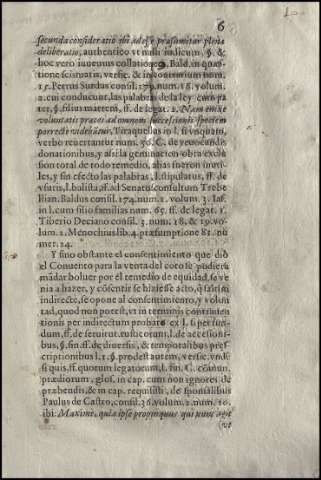 6
secunda consideratio ibi adesse præsumitur plena
deliberatio, authentico ut nulli iudicum, §. &
hoc vero iuuenus collatione 9. Bald. in quæ-
stione scismatis, versic. & innouatium num.
15. Petrus Surdus consil. 179. num. 18. volum.
2. cui conducunt, las palabras de la ley cum pa-
ter, §. filius matrem, ff. de legat. 2. Nam enixæ
voluntatis preces ad omnem successionis speciem
porrectæ videbatur, Tiraquellas in l. si vnquam,
verbo reuertantur num. 56. C. de reuocandis
donationibus, y assi la geminacion obra exclu-
sion total de todo remedio, alias fueron inuti-
les, y sin efecto las palabras, l. stipulatus, ff. de
vsuris, l. balista, ff. ad Senatusconsultum Trebe-
llian. Baldus consil. 174. num. 2. volum. 3. Ias.
in l. cum filio familias num. 65. ff. de legat. 1.
Tiberio Deciano consil. 3. num. 18. & 19. vol-
lum. 1. Menochius lib. 4. præsumptione 81. nu
mer. 24.
Y sino obstante el consentimiento que dió
el Conuento para la venta del censo se pudiera
mādar boluer por el remedio de equidad, se ve-
nia a hazer, y cōsentir se hiziesse acto, q̄ saltim
indirecto, se opone al consentimiento, y volun
tad, quod non potest, vt in terminis continen-
tionis per indirectum probare ex l. si per fun-
dum, ff. de seruitut. rusticorum, l. de accessioni-
bus, §. fin. ff. de diuersis, & temporalibus præ-
scriptionibus l. 1. §. prodest autem, versic. vnde
si quis, ff. quorum legatorum, l. fin. C. cōmun.
prædiorum, glos. in cap. cum non ignores de
præbendis, & in cap. requisiti, de sponsalibus
Paulus de Castro, consil. 36. volum. 2. num. 10.
ibi: Maxime, quia ipse propinquus qui nunc agit